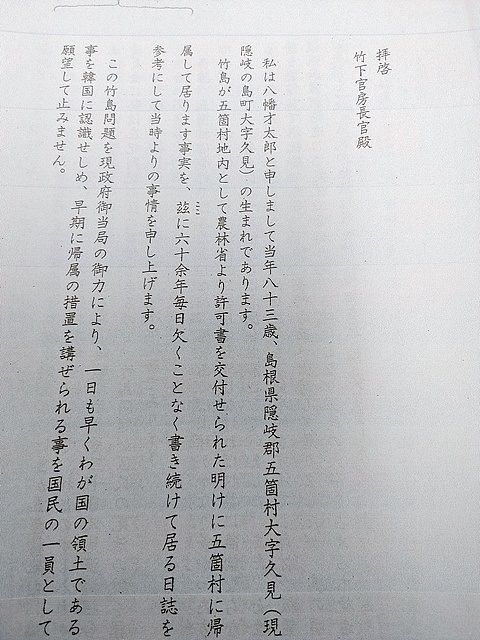 拝啓
竹下官房長官殿
私は八幡才太郎と申しまして当年八十三歳、島根県隠岐郡五箇村大字久見（現
隠岐の島町大字久見）の生まれであります。
竹島が五箇村地内として農林省より許可書を交付せられた明けに五箇村に帰
属して居ります事実を、玆に六十余年毎日欠くことなく書き続けて居る日誌を
参考にして当時よりの事情を申し上げます。
この竹島問題を現政府御当局の御力により、一日も早くわが国の領土である
事を韓国に認識せしめ、早期に帰属の措置を講ぜられる事を国民の一員として
願望して止みません。